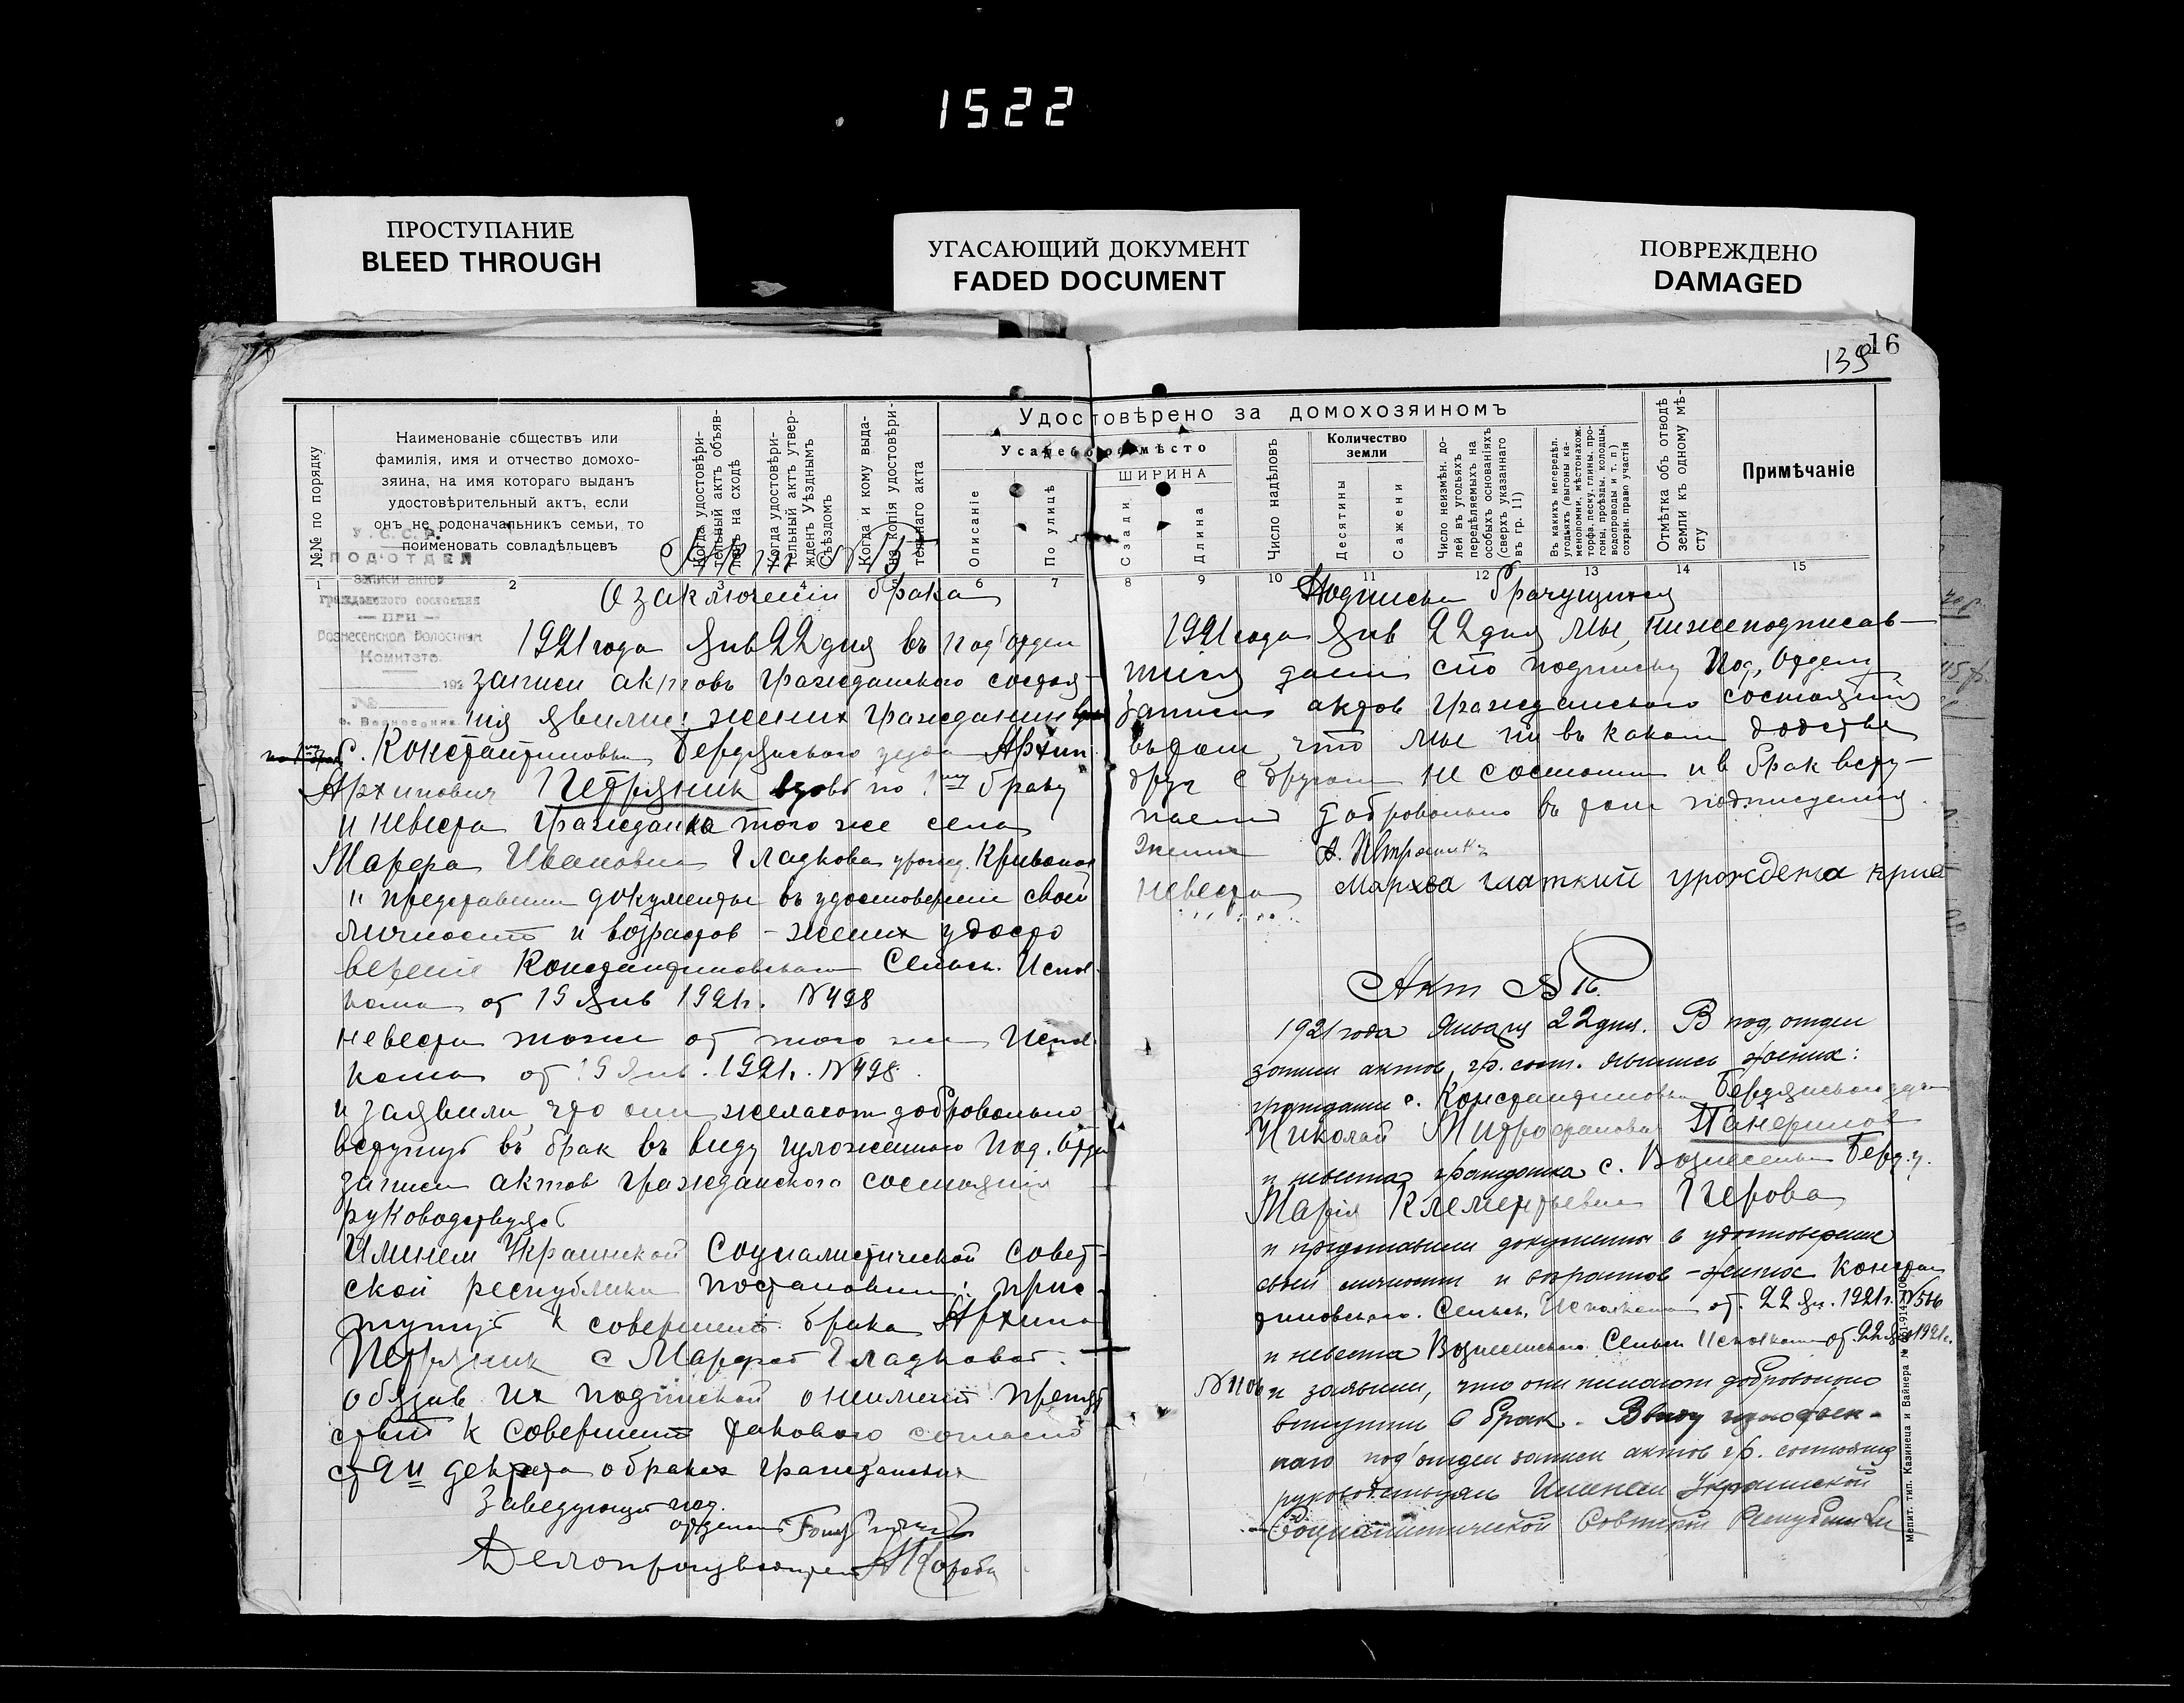 1522
ПРОСТУПАНИЕ
BLEED THROUGH
УГАСАЮЩИЙ ДОКУМЕНТ
FADED DOCUMENT
ПОВРЕЖДЕНО
DAMAGED
139 16
№№ по порядку
Наименованіе обществъ или
фамилія, имя и отчество домохо-
зяина, на имя котораго выданъ
удостовѣрительный актъ, если
онъ не родоначальникъ семьи, то
поименовать совладѣльцевъ
Когда удостовѣри-
тельный актъ объяв-
ленъ на сходѣ
Когда удостовѣри-
тельный актъ утвер-
жденъ Уѣзднымъ
Съѣздомъ
Когда и кому выда-
на копія удостовѣри-
тельнаго акта
Удостовѣрено за домохозяиномъ
Усадебное мѣсто
Описаніе
По улицѣ
ШИРИНА
Сзади
Длина
Число надѣловъ
Количество
земли
Десятины
Сажени
Число неизмѣн. до-
лей въ угодьяхъ
передѣляемыхъ на
особыхъ основаніяхъ
(сверхъ указаннаго
въ гр. 11)
Въ какихъ непередѣл.
угодьяхъ (выгоны ка-
меноломни, мѣстонахож.
торфа, песку, глины, про-
гоны, проѣзды, колодцы,
водопроводы и т. п)
сохран. право участія
Отмѣтка объ отводѣ
земли къ одному мѣ-
сту
Примѣчаніе
1 2 3 4 5 6 7 8 9 10 11 12 13 14 15
У.С.С.Р.
ПОД'ОТДЕЛ
записи актов
гражданского состояния
— ПРИ —
Вознесенском Волостном
Комитете.
192
№
с. Вознесенка
Акт № 15
О заключении брака
1921 года Янв 22 дня въ под'отдел
записи актовъ гражданского состоя-
ния явились жених гражданин
с. Константиновки Бердянского уезда Архип
Архипович Петряник вдов по 1му браку
и невеста гражданка того же села
Марфа Ивановна Гладкова урожд.
и представили документы въ удостоверение своей
личности и возрастов - жених удосто
верение Константиновского Сельск. Испол
кома от 19 Янв 1921г. №498
невеста тоже от того же Испол
кома от 19 Янв. 1921г. №498.
и заявили, что они желают добровольно
вступить въ брак въ виду изложенного Под. Отдел
записи актов гражданского состояния
руководствуясь
Именем Украинской Социалистической Совет-
ской республики постановил: прис-
тупить к совершению брака Архипа
Петряник с Марфой Гладковой.
обязав их подпиской о неимении препят
ствий к совершению такового согласно
ст 9й декрета о браках гражданских
Заведующий под.
отделом
Делопроизводитель
Подписка Брачущихся
1921 года Янв 22 дня Мы, нижеподписав-
шиеся даем сию подписку Под, Отделу
Записи актов гражданского состояния
въ том, что мы ни въ каком родстве
друг с другом не состоим и в брак всту-
паем добровольно въ том подписуемся.
Жених А. Петряникъ
Невеста Мархва глаткий урождена
Акт № 16.
1921 года Января 22 дня. В под. отдел
записи актов гр. сост. явились жених:
гражданин с. Константиновки Бердянского уезда
Николай Митрофанович
и невеста гражданка с. Вознесенки Берд. у.
Мария Клементьевна
и представили документы в удостоверение
своей личности и возрастов - жених Констан
тиновского. Сельск. Исполкома от. 22 Ян. 1921г. №566
и невеста Вознесенского Сельск Исполкома от 22 Янв 1921г.
№1106 и заявили, что они желают добровольно
вступить в брак. Ввиду изложен-
наго под'отдел записи актов гр. состояния
руководствуясь Именем Украинской
Социалистической Советской Республики
Мепит. тип. Казинеца и Вайнера